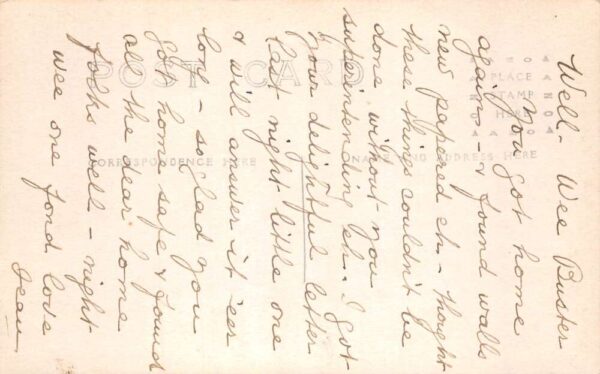 Well - Wee Buster
you got home
again - & found walls
new papered eh - thought
these things couldn't be
done without you
superintending eh. I got
your delightful letter
last night little one
& will answer it 'eer
long - so glad you
got home safe & found
all the dear home
folks well - night
wee one fond love
Jean
POST CARD
CORRESPONDENCE HERE
NAME AND ADDRESS HERE
PLACE
STAMP
HERE